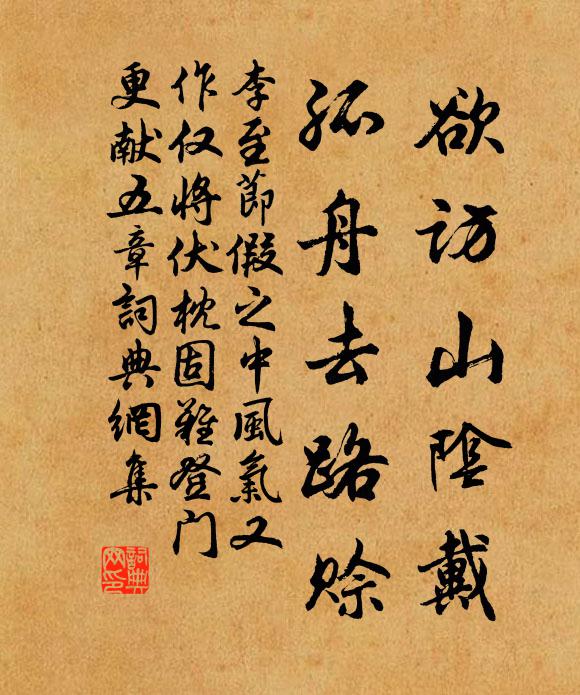 欲访山陰戴
孤舟去路赊
李至節假之中風氣又
作仅將伏枕固難登门
更献五章詞典網集
詞典网印